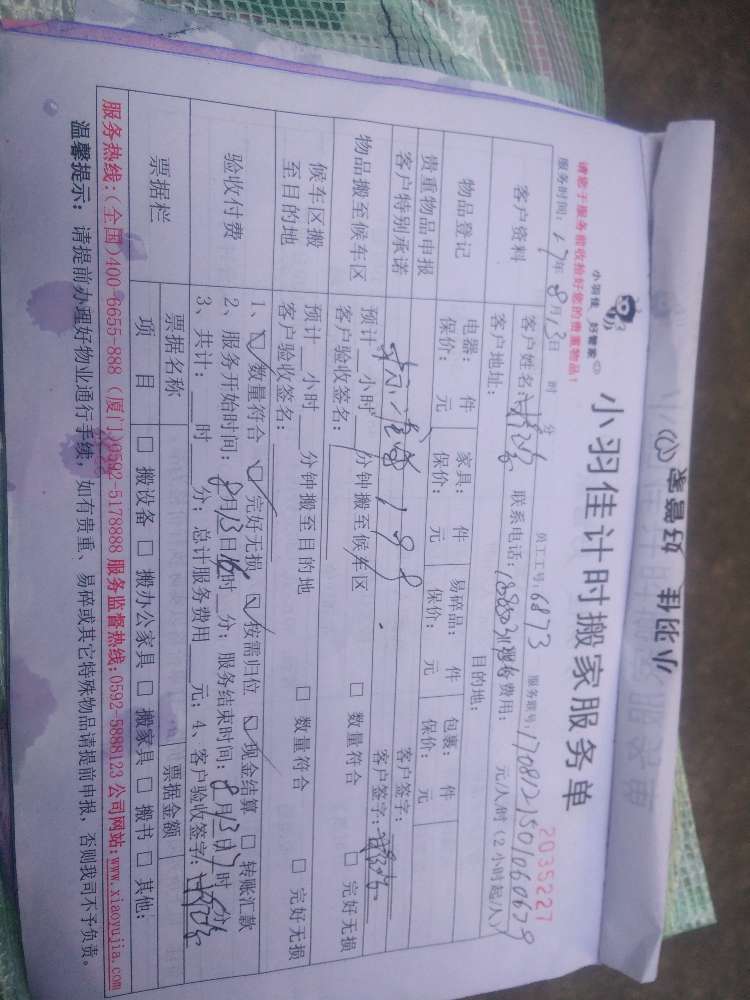 小羽佳 好管家
小羽佳 好管家
小羽佳计时搬家服务单
请您于服务前收拾好您的贵重物品！
2035227
服务时间：17年8月13日 时 分 员工工号：6873 服务跟号：
客户资料
客户姓名： 联系电话： 费用： 元/人/时（2小时起/人）
客户地址： 目的地：
物品登记
电器： 件 家具： 件 易碎品： 件 包裹： 件
保价： 元 保价： 元 保价： 元 保价： 元
贵重物品申报 客户签字：
客户特别承诺 客户签字：
物品搬至候车区
预计 小时 分钟搬至候车区 □ 数量符合 □ 完好无损
客户验收签名：
候车区搬
至目的地
预计 小时 分钟搬至目的地 □ 数量符合 □ 完好无损
客户验收签名：
验收付费
1、☑数量符合 ☑完好无损 ☑按需归位 ☑现金结算 □转账汇款
2、服务开始时间：8月13日 时 分；服务结束时间：8月13日 时 分
3、共计： 时 分；总计服务费用 元；4、客户验收签字：
票据栏
票据名称 票据金额
项 目 □ 搬设备 □ 搬办公家具 □ 搬家具 □ 搬书 □ 其他：
服务热线：(全国)400-6655-888 (厦门)0592-5178888 服务监督热线：0592-5888123 公司网站：www.xiaoyujia.com
温馨提示：请提前办理好物业通行手续，如有贵重、易碎或其它特殊物品请提前申报，否则我司不予负责。